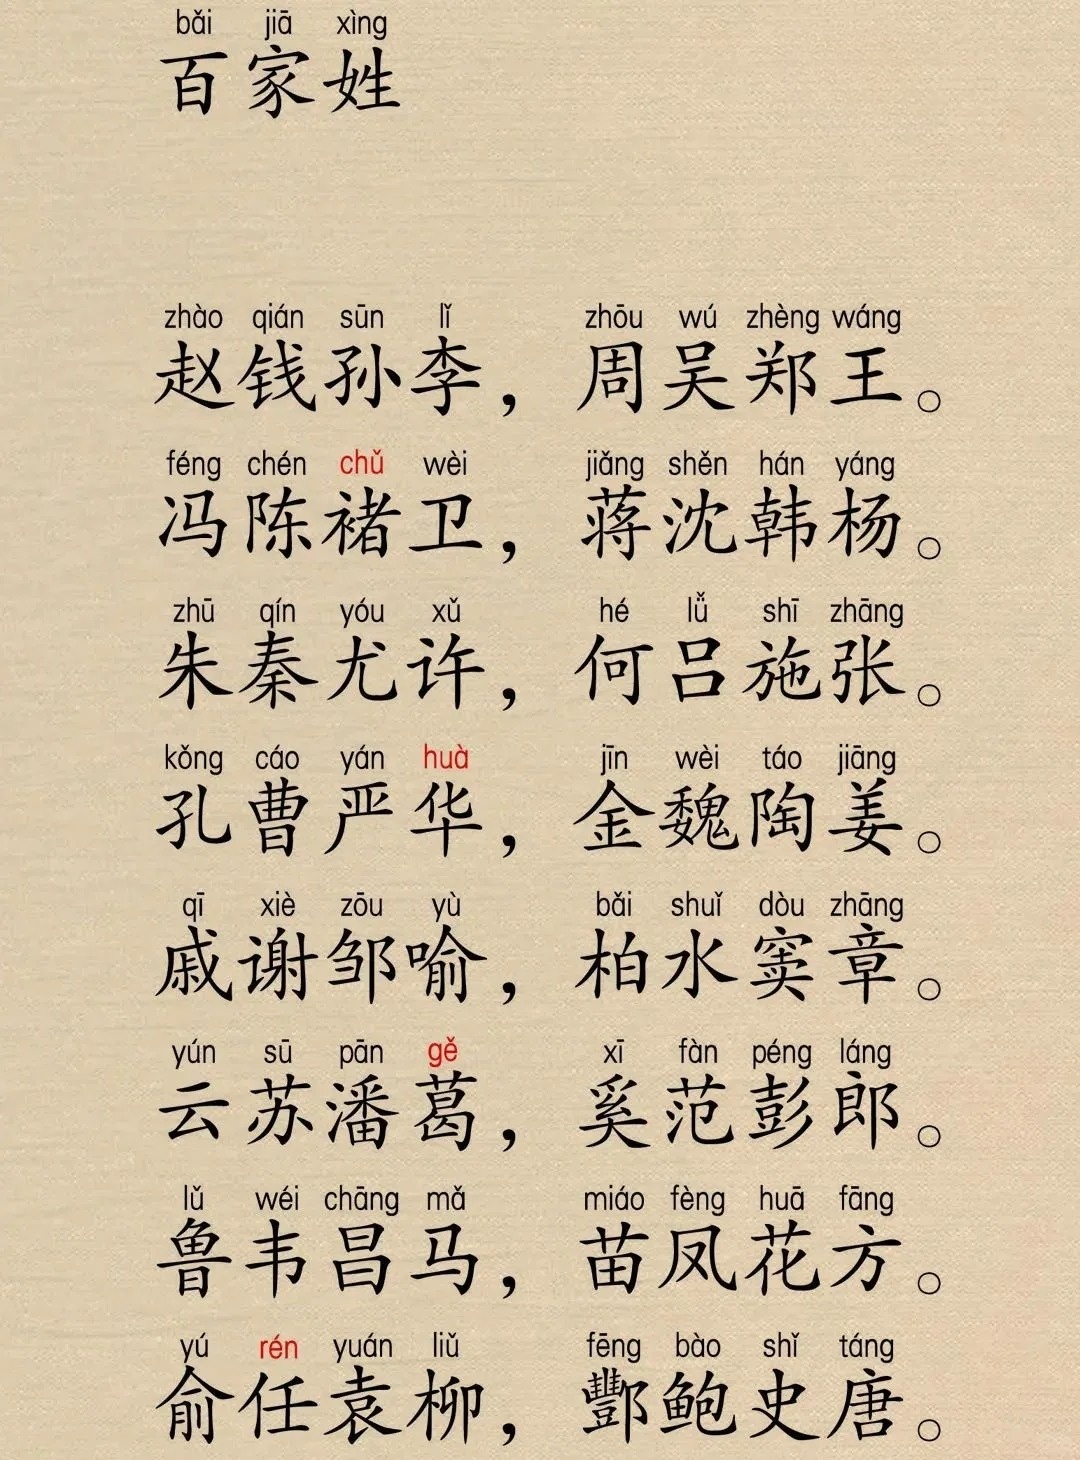 bǎi jiā xìng
百家姓
zhào qián sūn lǐ zhōu wú zhèng wáng
赵钱孙李，周吴郑王。
féng chén chǔ wèi jiǎng shěn hán yáng
冯陈褚卫，蒋沈韩杨。
zhū qín yóu xǔ hé lǚ shī zhāng
朱秦尤许，何吕施张。
kǒng cáo yán huà jīn wèi táo jiāng
孔曹严华，金魏陶姜。
qī xiè zōu yù bǎi shuǐ dòu zhāng
戚谢邹喻，柏水窦章。
yún sū pān gě xī fàn péng láng
云苏潘葛，奚范彭郎。
lǔ wéi chāng mǎ miáo fèng huā fāng
鲁韦昌马，苗凤花方。
yú rén yuán liǔ fēng bào shǐ táng
俞任袁柳，酆鲍史唐。